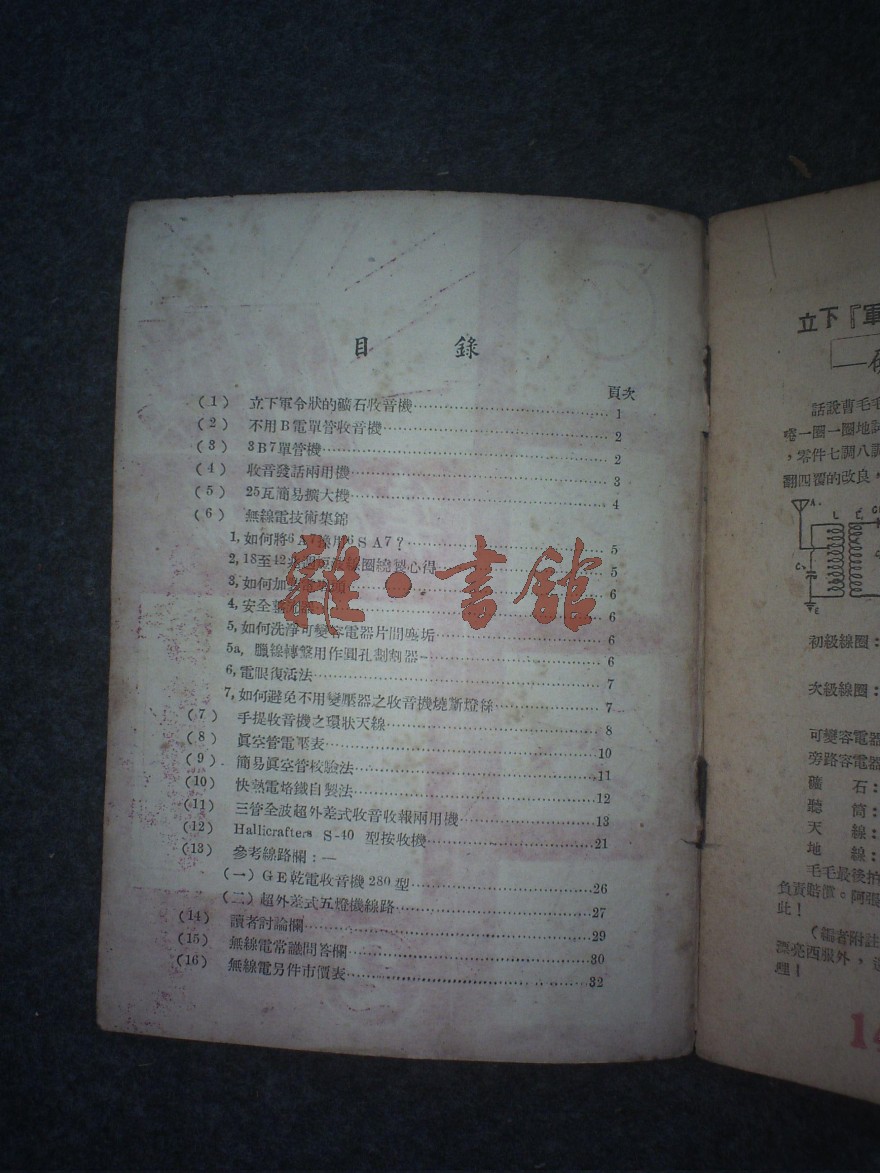 目 錄
頁次
(1) 立下軍令狀的礦石收音機 1
(2) 不用B電單管收音機 2
(3) 3B7單管機 2
(4) 收音發話兩用機 3
(5) 25瓦簡易擴大機 4
(6) 無線電技術集錦
1,如何將6A7換用6SA7? 5
2,18至42 線圈繞製心得 5
3,如何加 6
4,安全 6
5,如何洗淨可變容電器片間塵垢 6
5a, 臘線轉盤用作圓孔劃 器 6
6,電眼復活法 7
7,如何避免不用變壓器之收音機燒斷燈絲 7
(7) 手提收音機之環狀天線 8
(8) 眞空管電壓表 10
(9) 簡易眞空管校驗法 11
(10) 快熱電烙鐵自製法 12
(11) 三管全波超外差式收音收報兩用機 13
(12) Hallicrafters S-40 型接收機 21
(13) 參考線路欄:—
(一)GE乾電收音機280型 26
(二)超外差式五燈機線路 27
(14) 讀者討論欄 29
(15) 無線電常識問答欄 30
(16) 無線電另件市價表 32
雜·書館
立下『軍
話說曹毛毛
一圈一圈地
,零件七調八調
翻四覆的改良,
A.
L
C
E
初級線圈:
次級線圈:
可變容電器
旁路容電器
礦 石:
聽 筒:
天 線:
地 線:
毛毛最後拍
負責賠償。阿張
此!
(編者附註
漂亮西服外,
理!
14